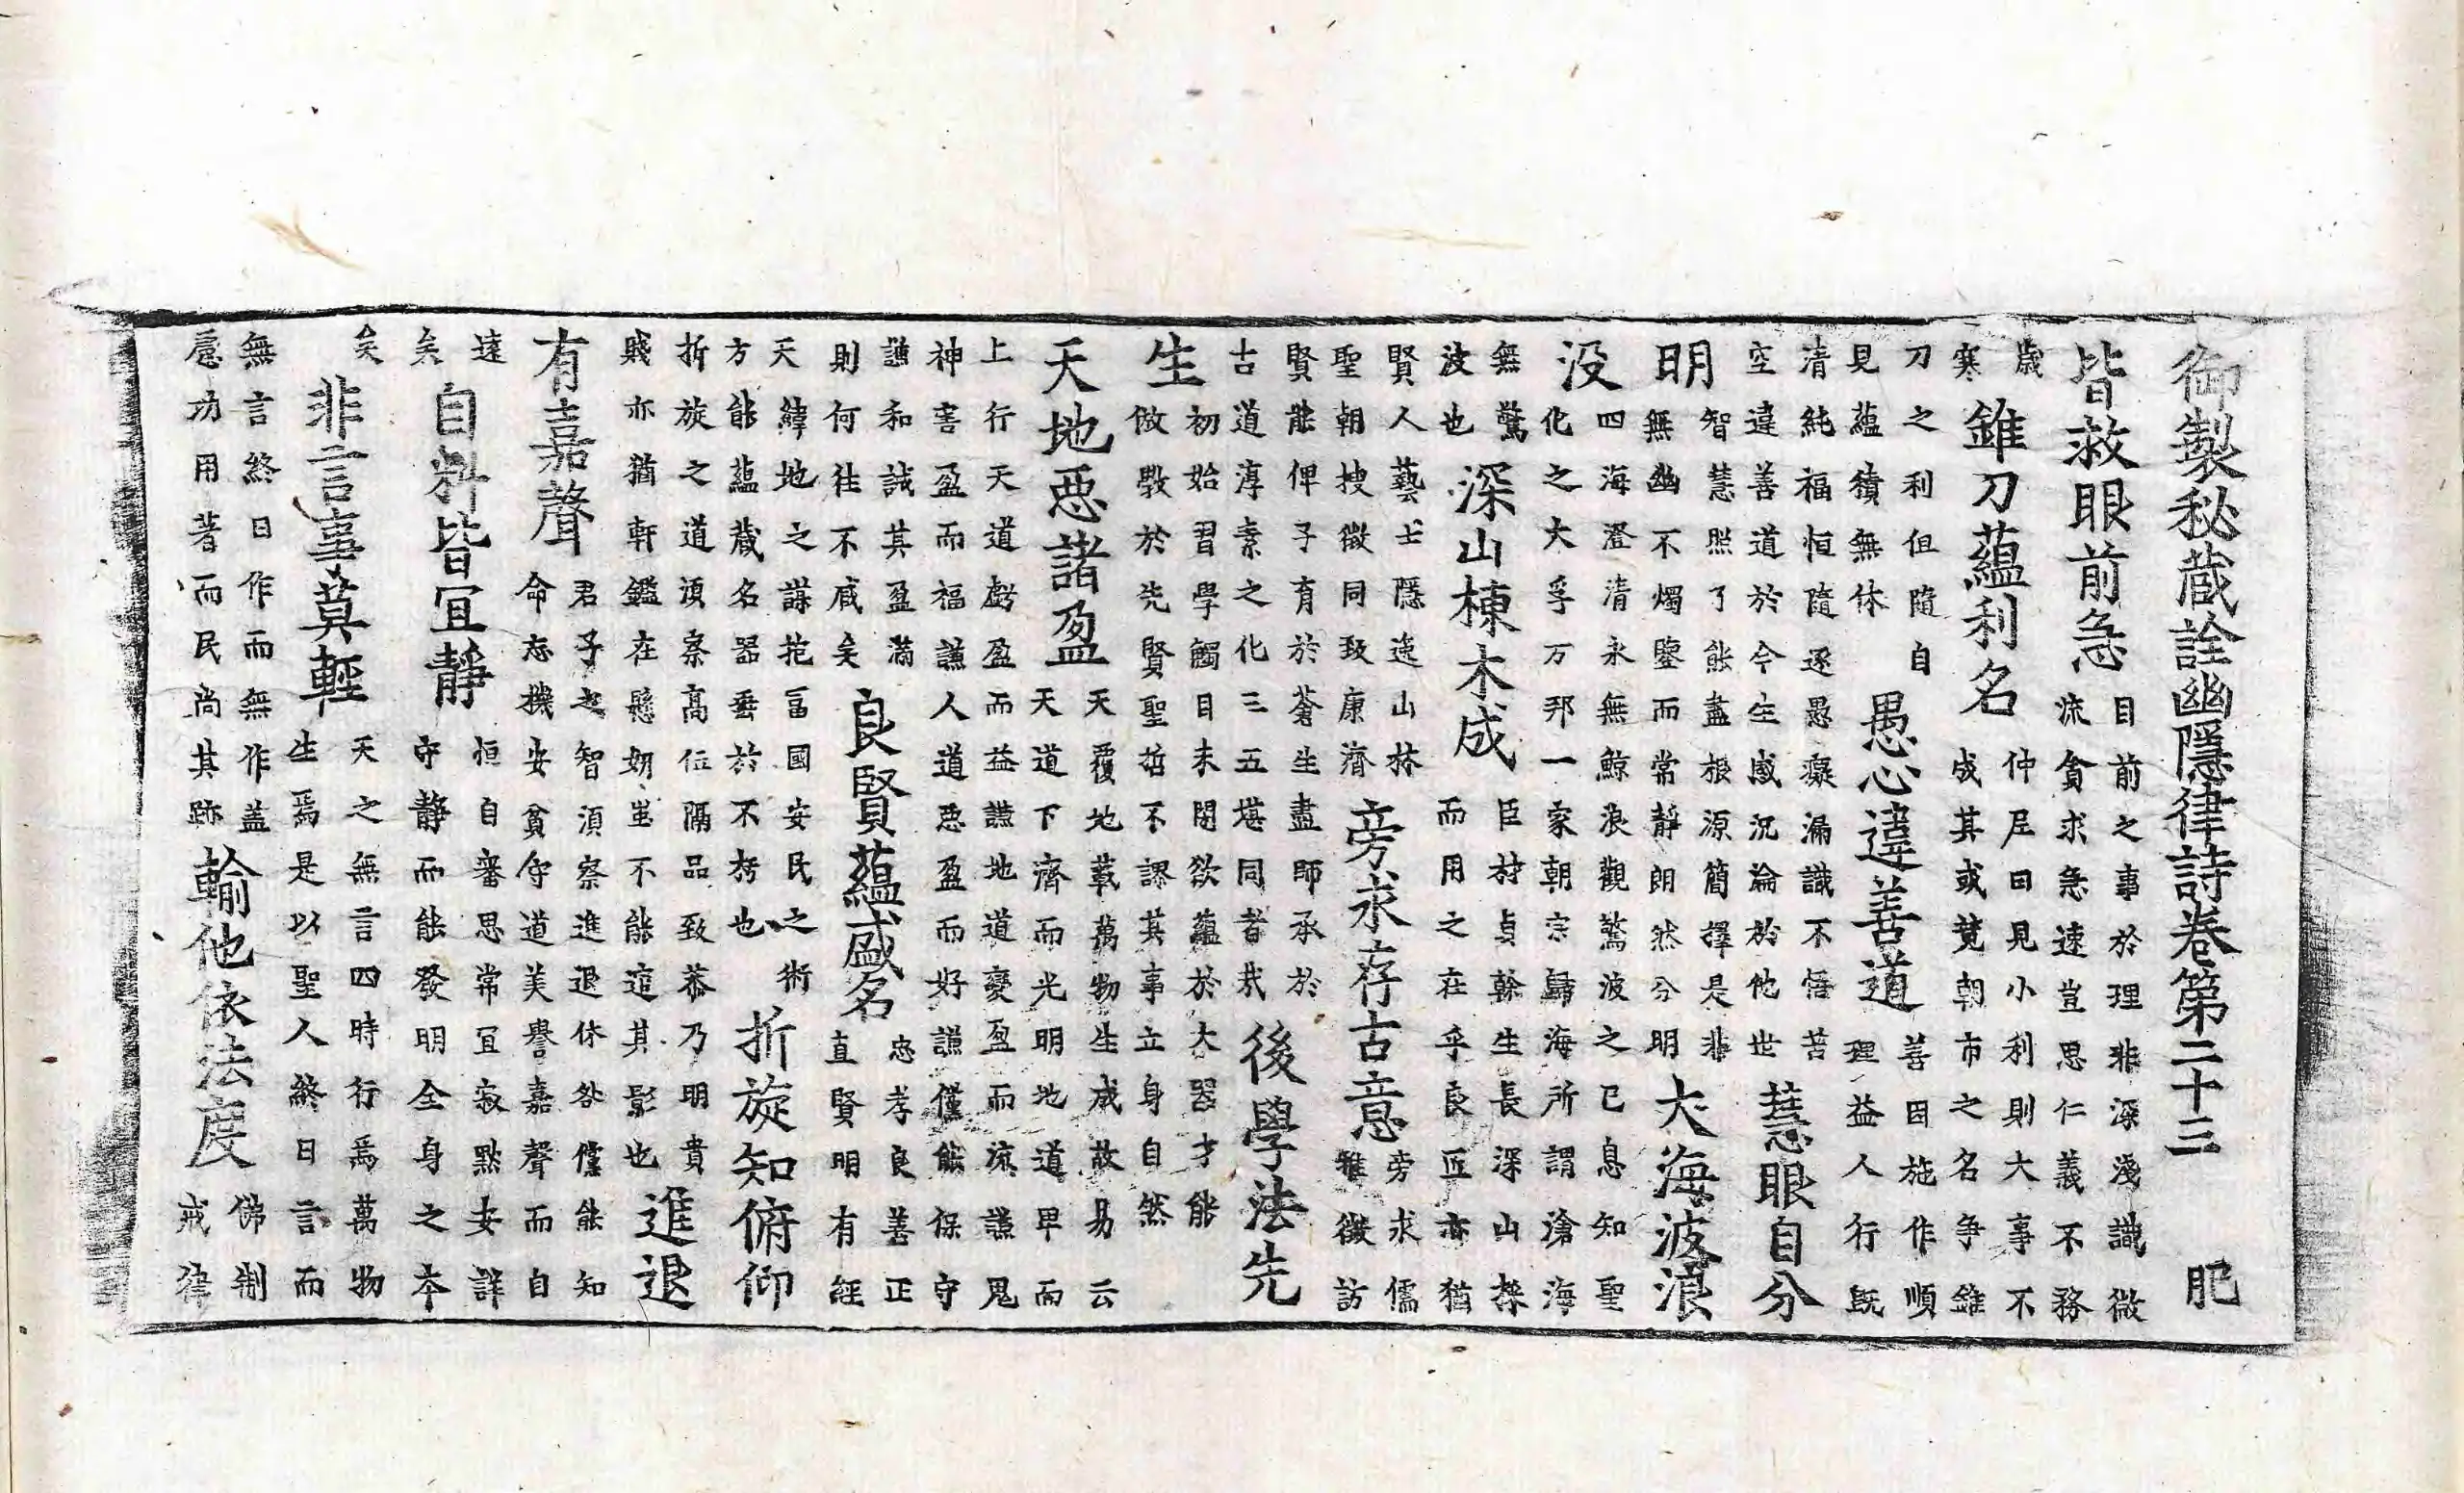 御製秘蔵詮幽隱律詩卷第二十三 肥
皆救眼前急 目前之事於理非深淺識微
流貪求急速豈思仁義不務
歲寒 錐刀蘊利名 仲尼曰見小利則大事不
成其或競朝市之名爭錐
刀之利但隨自
見蘊積無休 愚心違善道 善因施作順
理益人行既
清純福恒隨逐愚癡漏識不悟苦
空違善道於今生感況淪於他世 慧眼自分
明 智慧照了能盡根源簡擇是非
無幽不燭鑒而常靜朗然分明 大海波浪
没 四海澄清永無鯨浪觀驚波之已息知聖
化之大孚万邦一家朝宗歸海所謂滄海
無驚
波也 深山棟木成 臣材貞幹生長深山採
而用之在乎良匠亦猶
賢人藝士隱迹山林
聖朝搜徵同致康濟 旁求存古意 旁求儒
雅徵訪
賢能俾子育於蒼生盡師承於
古道淳素之化三五堪同者哉 後學法先
生 初始習學觸目未閑欲蘊於大器才能
倣斅於先賢聖哲不謬其事立身自然
天地惡諸盈 天覆地載萬物生成故易云
天道下濟而光明地道卑而
上行天道虧盈而益謙地道變盈而流謙鬼
神害盈而福謙人道惡盈而好謙僅能保守
謙和誡其盈滿
則何往不咸矣 良賢蘊盛名 忠孝良善正
直賢明有經
天緯地之謀抱富國安民之術
方能蘊蔵名器垂於不朽也 折旋知俯仰
折旋之道須察高位隔品致恭乃明貴
賎亦猶軒鑑在懸妍蚩不能逭其影也 進退
有嘉聲 君子之智須察進退休咎僅能知
命志機安貧守道美譽嘉聲而自
遠
矣 自料皆宜靜 恒自審思常宜寂默安詳
守静而能發明全身之本
矣 非言事莫輕 天之無言四時行焉萬物
生焉是以聖人終日言而
無言終日作而無作盖
應功用著而民尚其跡 輸他依法度 佛制
戒律